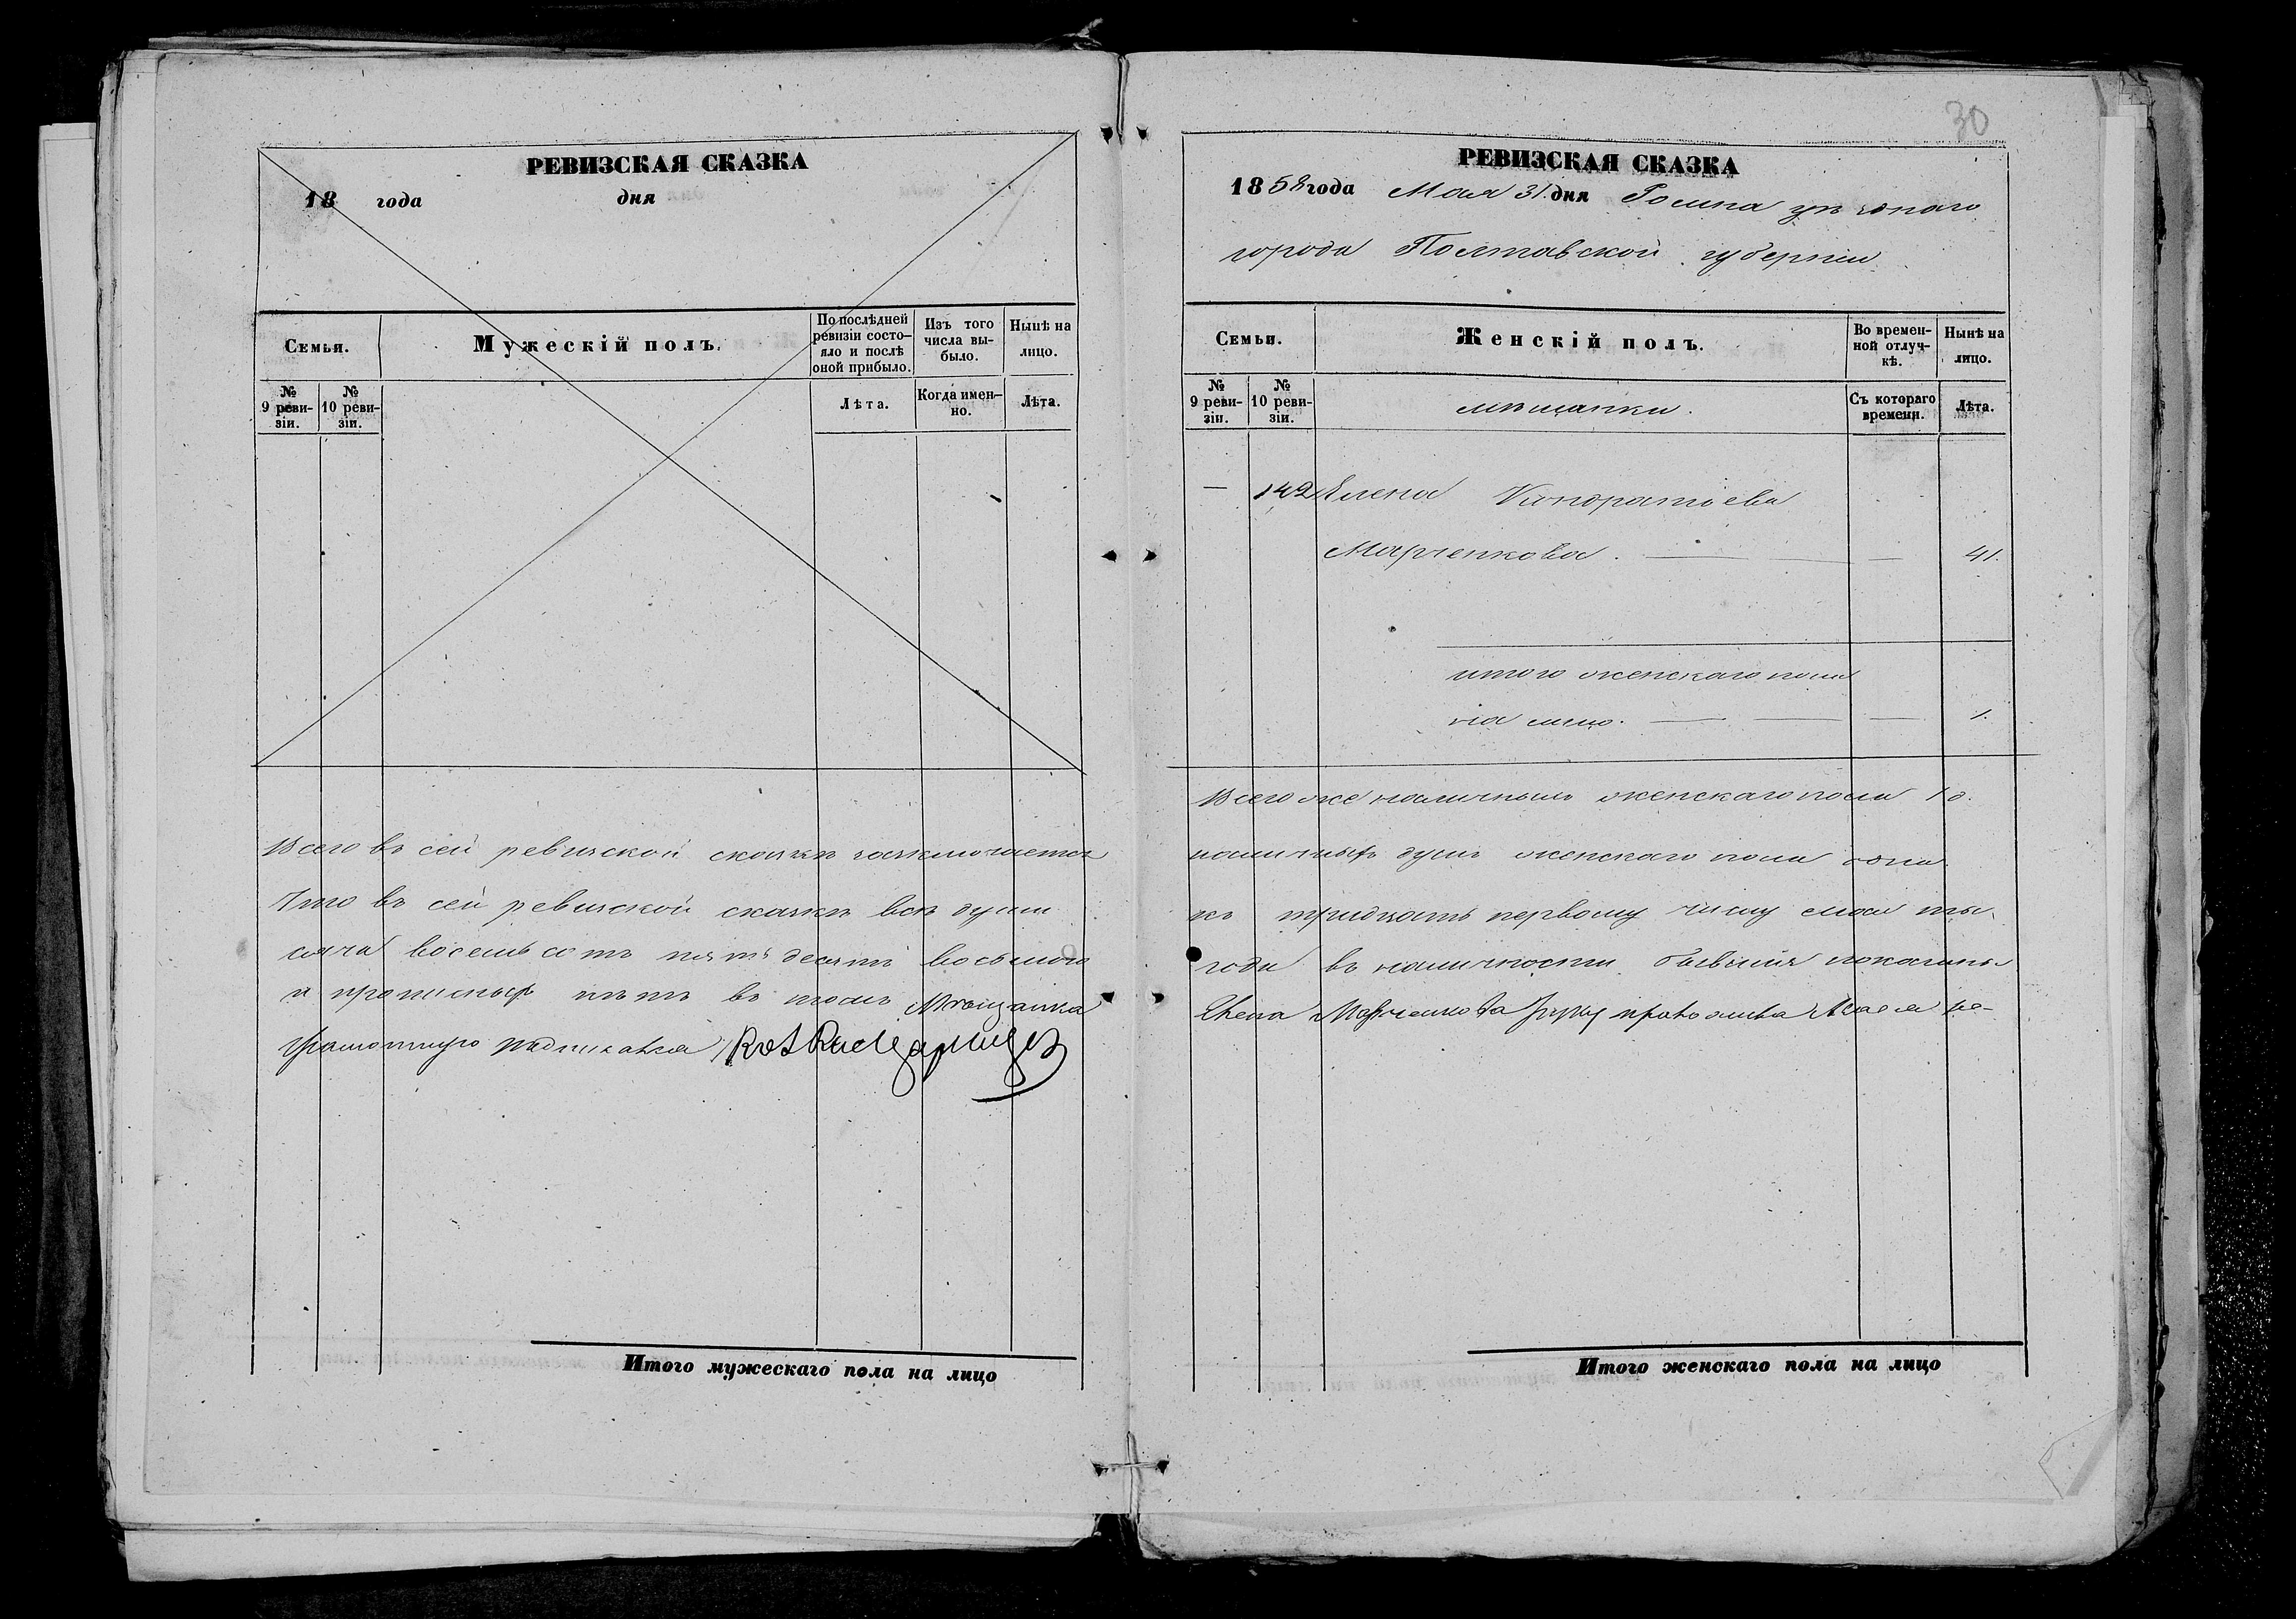 РЕВИЗСКАЯ СКАЗКА
18 года дня
Семьи.
Мужескій полъ.
По послѣдней ревизіи состояло и послѣ оной прибыло.
Изъ того числа выбыло.
Нынѣ на лицо.
№ 9 ревизіи.
№ 10 ревизіи.
Лѣта.
Когда именно.
Лѣта.
Всего въ сей ревизской сказкѣ заключается
Что въ сей ревизской сказкѣ всѣ души
сяча восемьсотъ пятьдесятъ восьмого
и прописныхъ нѣтъ въ томъ Мещанка
Итого мужескаго пола на лицо
30
РЕВИЗСКАЯ СКАЗКА
1858 года Мая 31 дня Ромна уѣзднаго
города Полтавской губерніи
Семьи.
Женскій полъ.
Во временной отлучкѣ.
Нынѣ на лицо.
№ 9 ревизіи.
№ 10 ревизіи.
мѣщанки.
Съ котораго времени.
Лѣта.
— 142 Елена Кондратьева
Марченкова. — — 41.
итого женскаго пола
на лицо. — — — 1.
Всего же наличныхъ женскаго пола 1 д.
наличныхъ душъ женскаго пола одна
къ тридцать первому числу мая ты-
года въ наличности бывшія показаны
Елена Марченкова
Итого женскаго пола на лицо